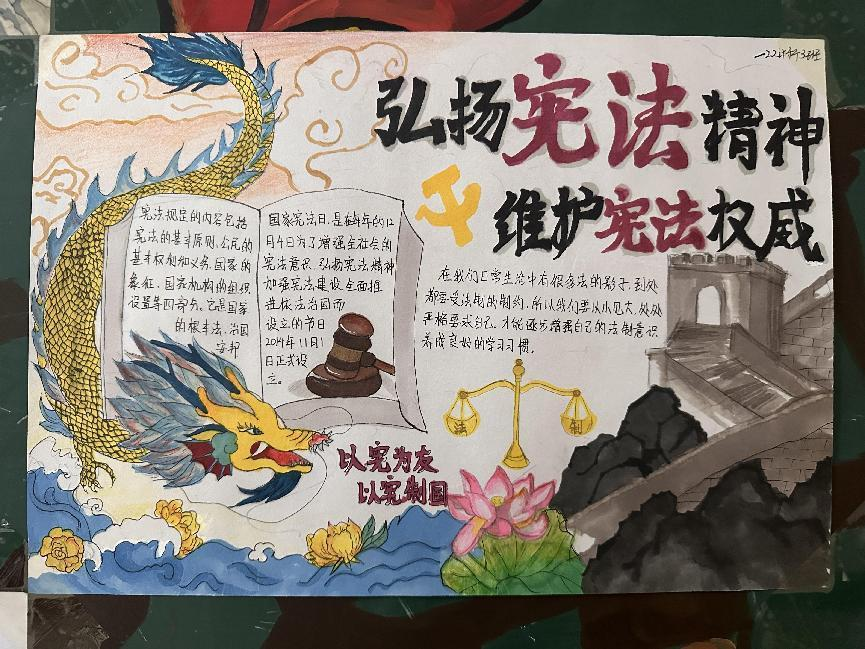 弘扬宪法精神
维护宪法权威
宪法规定的内容包括
宪法的基本原则、公民的
基本权利和义务、国家的
象征、国家机构的组织
设置等四部分。它是国家
的根本法、治国
安邦
国家宪法日，是在每年的12
月4日为了增强全社会的
宪法意识、弘扬宪法精神
加强宪法建设全面推
进依法治国而
设立的节日
2014年11月1
日正式设
立。
在我们日常生活中有很多法的影子，到处
都要受法的制约，所以我们要从小见大，处处
严格要求自己，才能逐步增强自己的法制意识
养成良好的学习习惯。
法 制
以宪为友
以宪制国